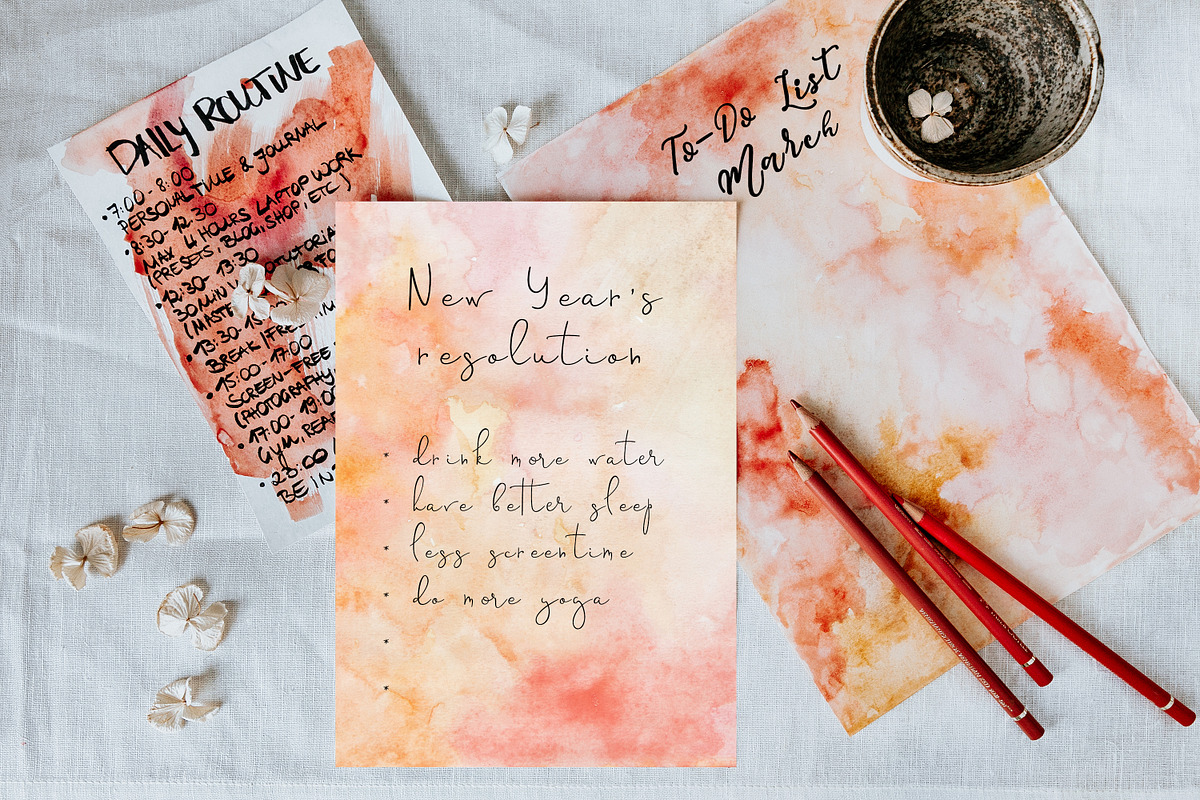 DAILY ROUTINE
• 7:00 - 8:00
PERSONAL TIME & JOURNAL
• 8:30 - 12:30
MAX 4 HOURS LAPTOP WORK
(PRESETS, BLOG, SHOP, ETC)
• 12:30 - 13:30
30 MIN
• 13:30 -
BREAK /
• 15:00 - 17:00
SCREEN-FREE
(PHOTOGRAPHY,
• 17:00 -
GYM,
•
BE IN
To-Do List
March
New Year's
resolution
* drink more water
* have better sleep
* less screentime
* do more yoga
*
*